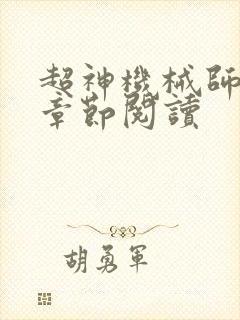 超神機械師
章節閱讀
胡勇軍